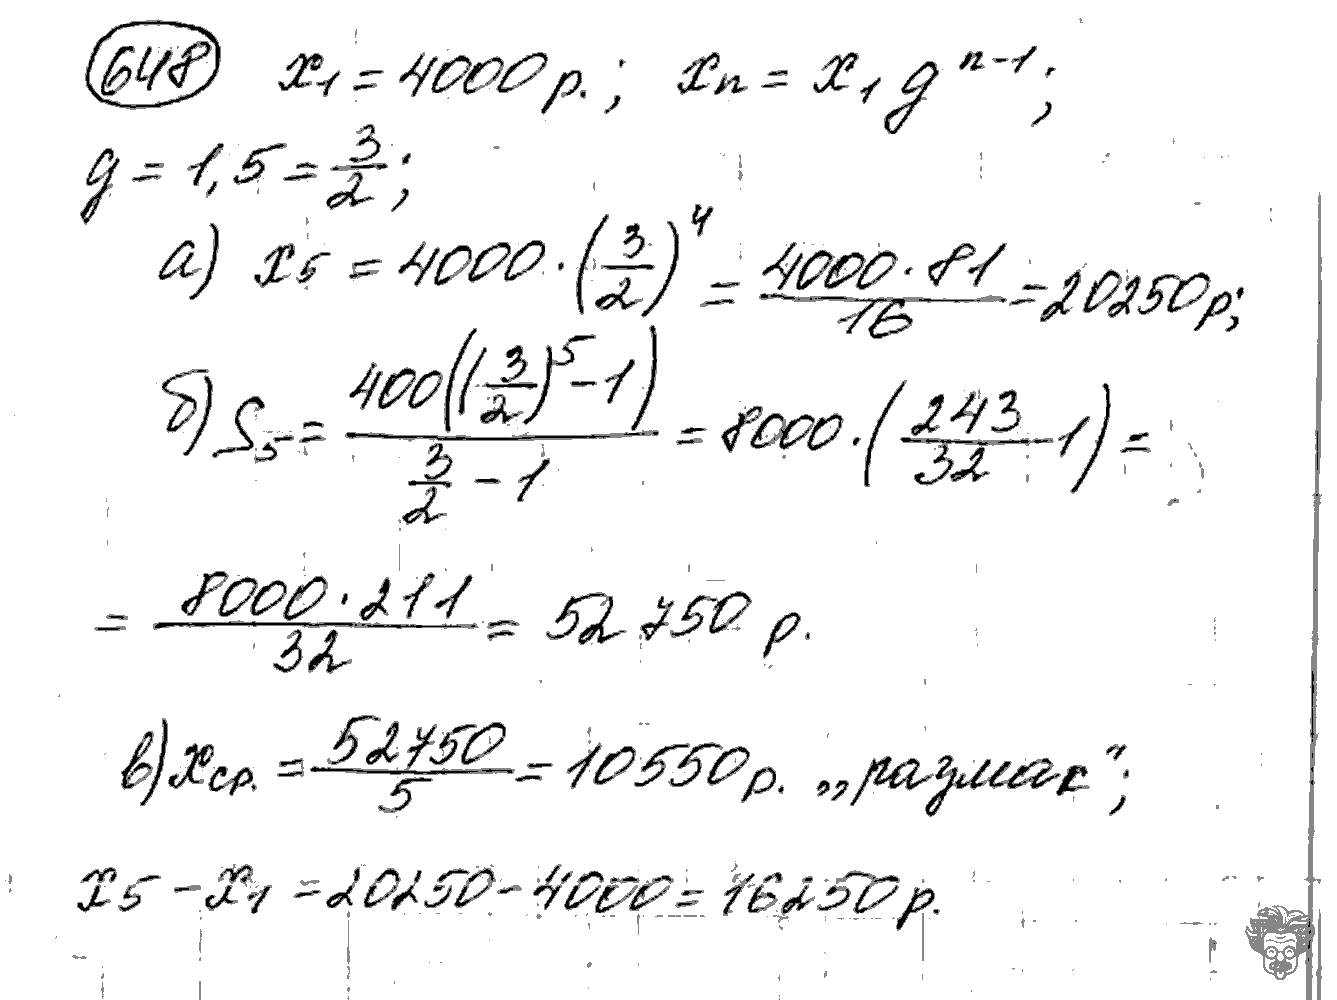 648 x₁ = 4000 р.; xₙ = x₁ g^(n-1);
g = 1,5 = 3/2;
а) x₅ = 4000 · (3/2)^4 = (4000 · 81)/16 = 20250 р;
б) S₅ = (400((3/2)^5 - 1))/(3/2 - 1) = 8000 · (243/32 - 1) =
= (8000 · 211)/32 = 52 750 р.
в) xср. = 52750/5 = 10550 р. „размах";
x₅ - x₁ = 20250 - 4000 = 16250 р.